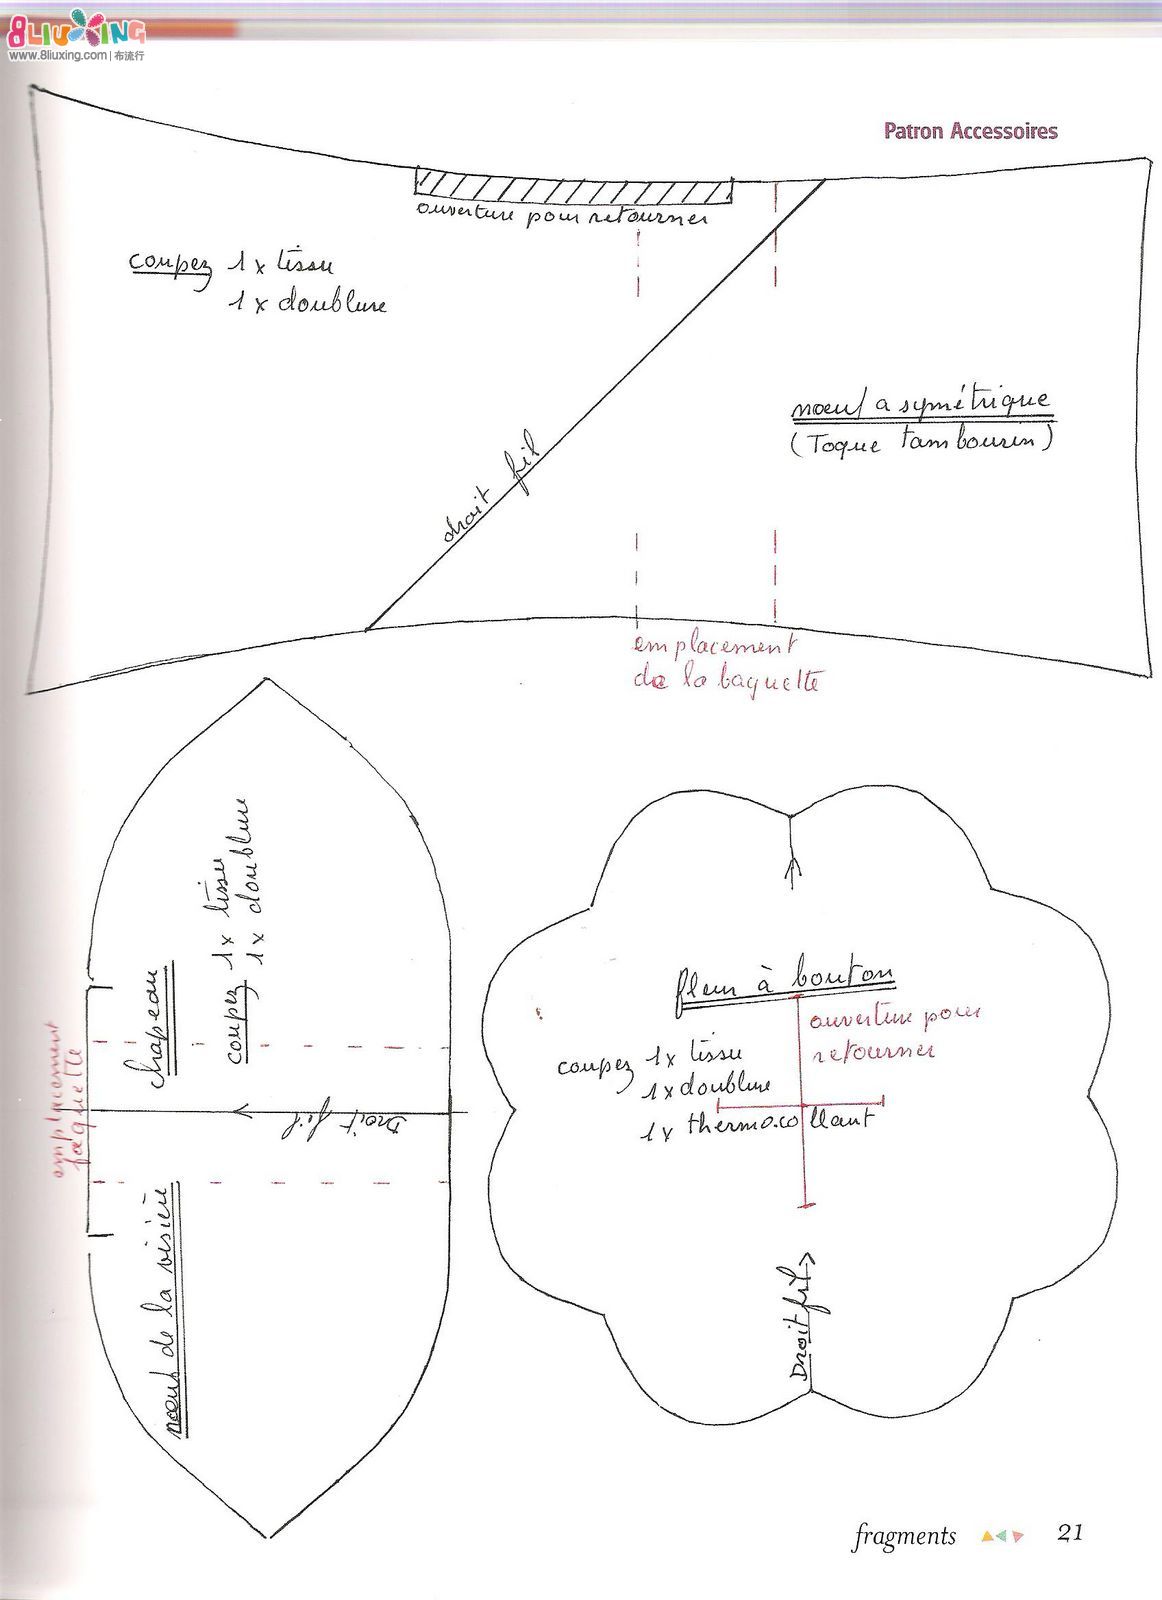 8LIUXING
www.8liuxing.com | 布流行
Patron Accessoires
ouverture pour retourner
coupez 1x tissu
1x doublure
nœud asymétrique
(Toque tambourin)
droit fil
emplacement
de la baguette
chapeau
coupez 1x tissu
1x doublure
emplacement
Droit fil
nœud de la visière
fleur à bouton
ouverture pour
retourner
coupez 1x tissu
1x doublure
1x thermocollant
Droit fil
fragments 21